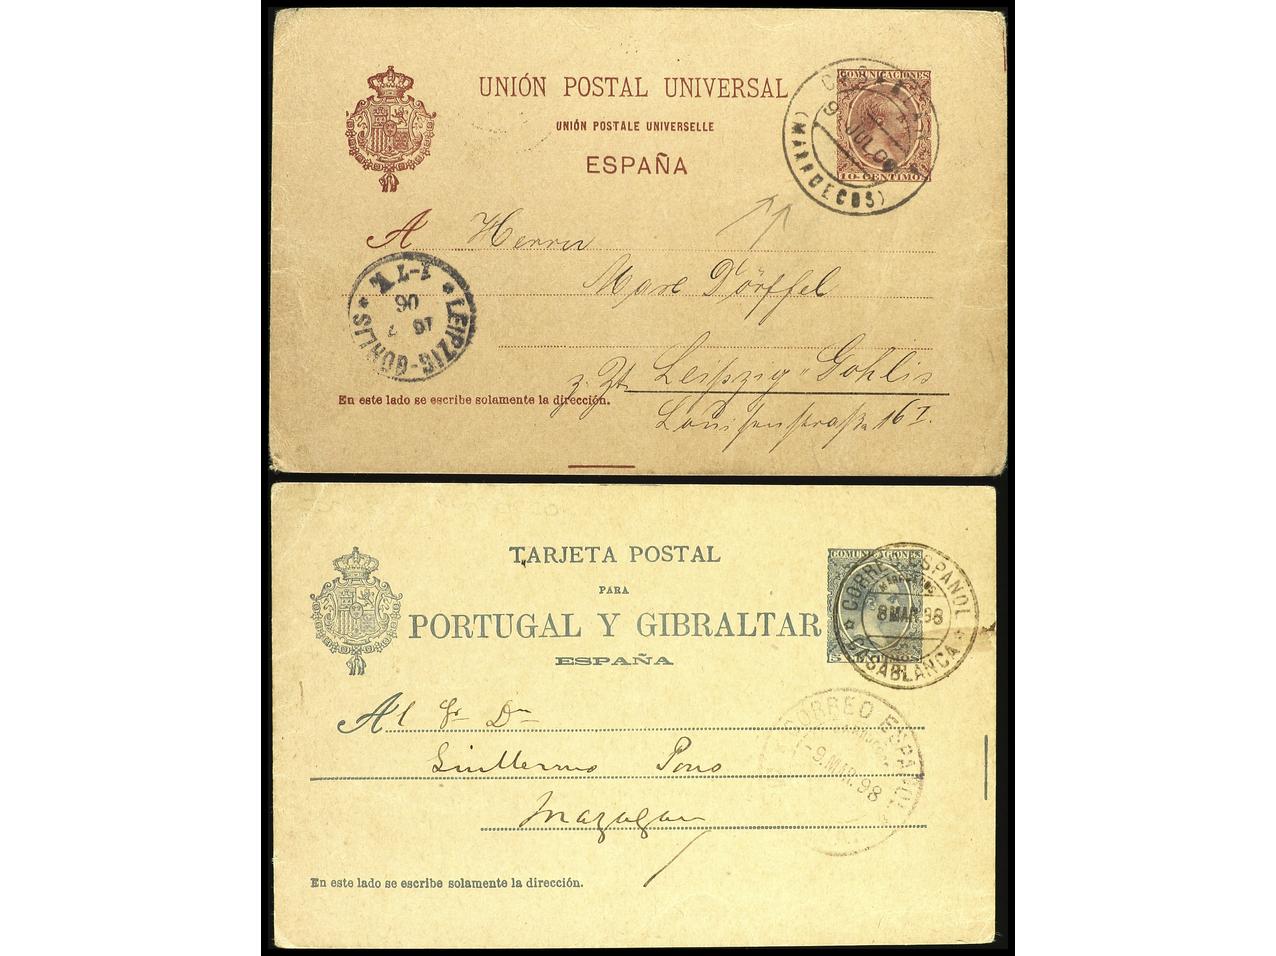 UNIÓN POSTAL UNIVERSAL
UNIÓN POSTALE UNIVERSELLE
ESPAÑA
COMUNICACIONES
10 CENTIMOS
9 JUL 06
(MARRUECOS)
A Herrn
Dörffel
z. Zt. Leipzig-Gohlis
16 I.
En este lado se escribe solamente la dirección.
* LEIPZIG-GOHLIS *
1-7 N.
06
TARJETA POSTAL
PARA
PORTUGAL Y GIBRALTAR
ESPAÑA
COMUNICACIONES
CORREO ESPAÑOL
MARRUECOS
8 MAR. 98
* CASABLANCA *
Al Sr Dn
Guillermo Pono
Mazagan
CORREO ESPAÑOL
MARRUECOS
-9. MAR. 98
En este lado se escribe solamente la dirección.